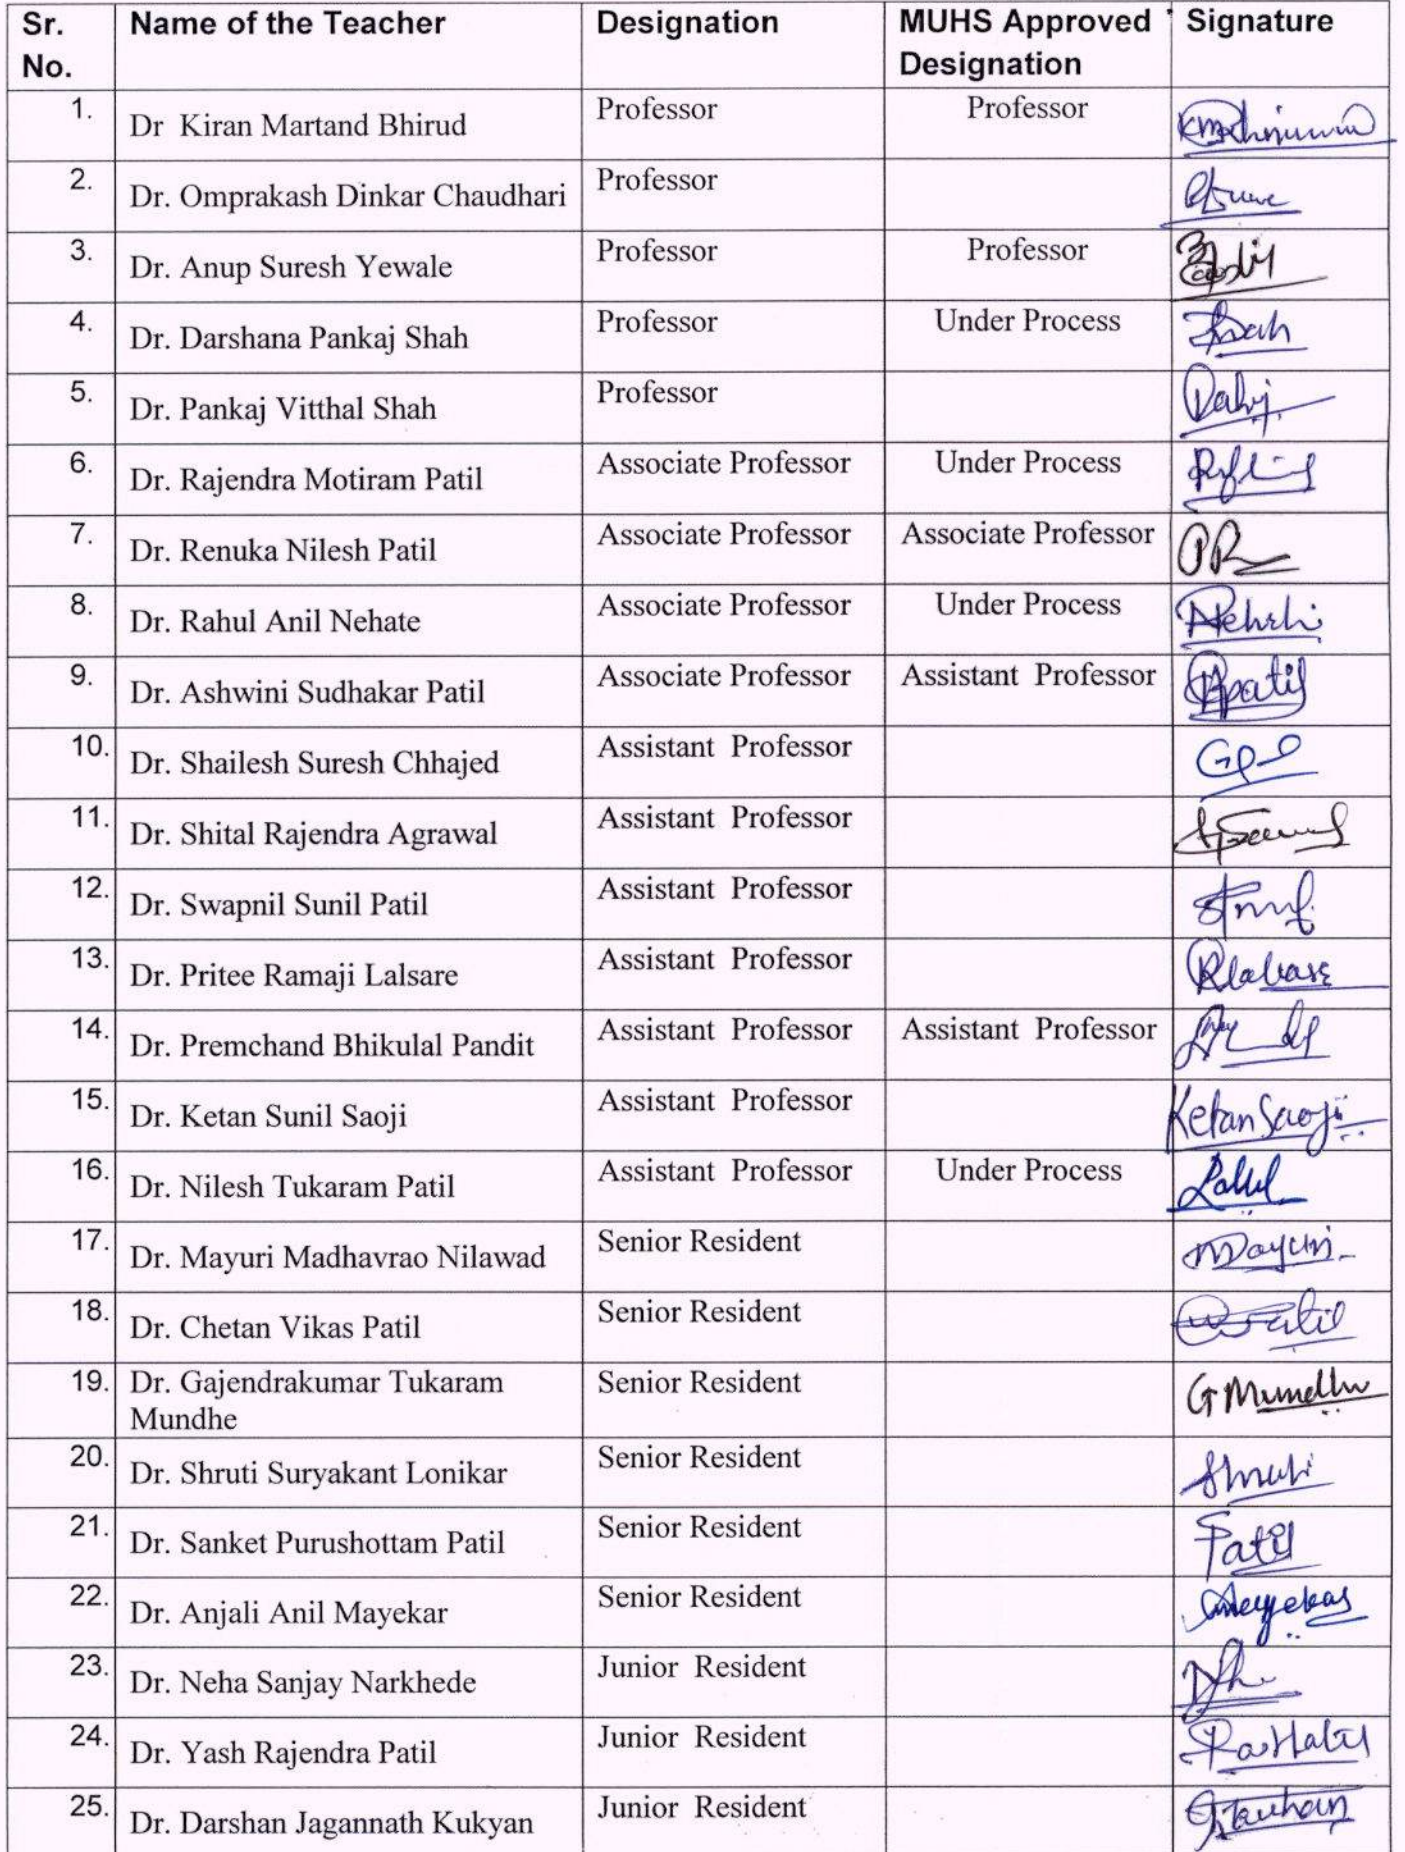 Sr. No. Name of the Teacher Designation MUHS Approved Designation Signature
1. Dr Kiran Martand Bhirud Professor Professor
2. Dr. Omprakash Dinkar Chaudhari Professor
3. Dr. Anup Suresh Yewale Professor Professor
4. Dr. Darshana Pankaj Shah Professor Under Process
5. Dr. Pankaj Vitthal Shah Professor
6. Dr. Rajendra Motiram Patil Associate Professor Under Process
7. Dr. Renuka Nilesh Patil Associate Professor Associate Professor
8. Dr. Rahul Anil Nehate Associate Professor Under Process
9. Dr. Ashwini Sudhakar Patil Associate Professor Assistant Professor
10. Dr. Shailesh Suresh Chhajed Assistant Professor
11. Dr. Shital Rajendra Agrawal Assistant Professor
12. Dr. Swapnil Sunil Patil Assistant Professor
13. Dr. Pritee Ramaji Lalsare Assistant Professor
14. Dr. Premchand Bhikulal Pandit Assistant Professor Assistant Professor
15. Dr. Ketan Sunil Saoji Assistant Professor Ketan Saoji
16. Dr. Nilesh Tukaram Patil Assistant Professor Under Process
17. Dr. Mayuri Madhavrao Nilawad Senior Resident
18. Dr. Chetan Vikas Patil Senior Resident
19. Dr. Gajendrakumar Tukaram Mundhe Senior Resident
20. Dr. Shruti Suryakant Lonikar Senior Resident
21. Dr. Sanket Purushottam Patil Senior Resident Patil
22. Dr. Anjali Anil Mayekar Senior Resident
23. Dr. Neha Sanjay Narkhede Junior Resident
24. Dr. Yash Rajendra Patil Junior Resident
25. Dr. Darshan Jagannath Kukyan Junior Resident